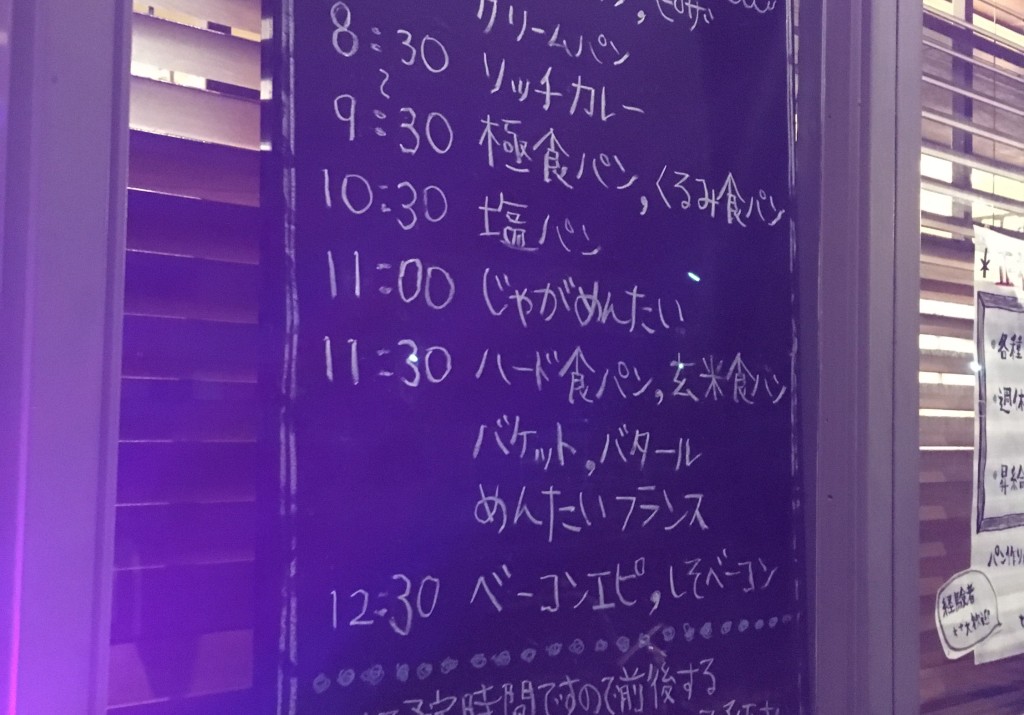 ピザ
8:30 クリームパン
〜 リッチカレー
9:30 極食パン,くるみ食パン
10:30 塩パン
11:00 じゃがめんたい
11:30 ハード食パン,玄米食パン
バケット,バタール
めんたいフランス
12:30 ベーコンエピ,しそベーコン
予定時間ですので前後する
¥
・各種
・週休
・昇給
パン作り
経験者
大歓迎